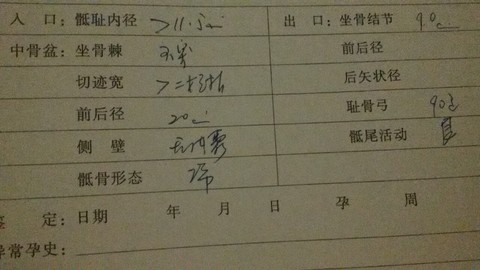 入 口：骶耻内径 >11.5cm 出 口：坐骨结节 9.0cm
中骨盆：坐骨棘 不突 前后径
切迹宽 >二横指 后矢状径
前后径 20cm 耻骨弓 90°
侧 壁 骶尾活动
骶骨形态
鉴 定：日期 年 月 日 孕 周
异常孕史：